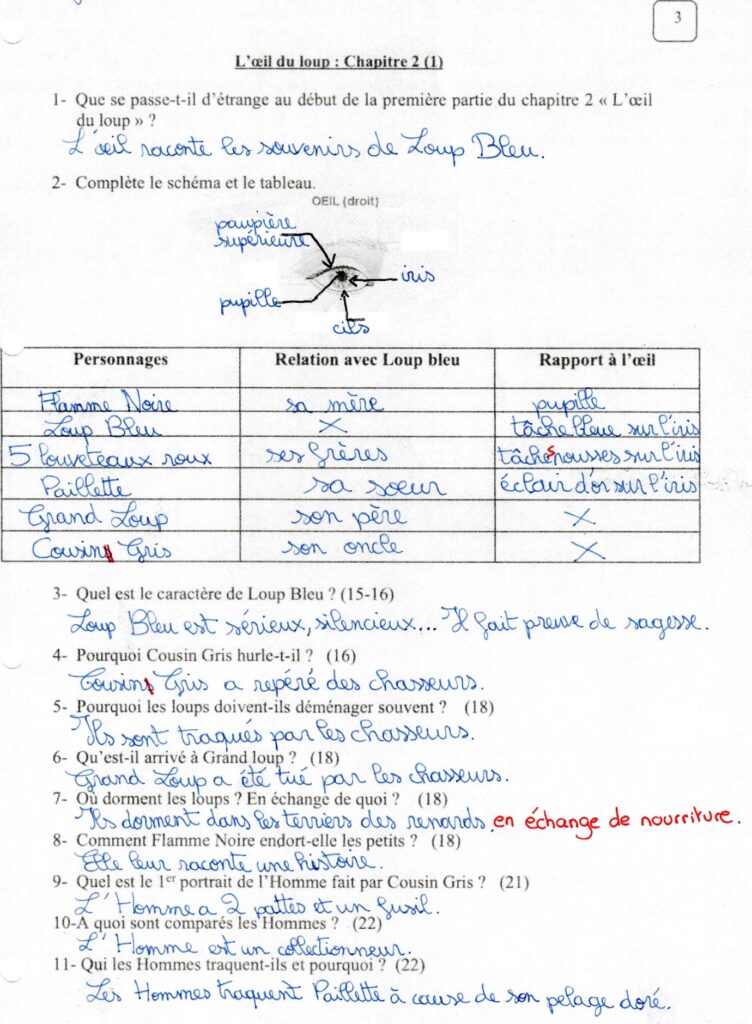 3
L'œil du loup : Chapitre 2 (1)
1- Que se passe-t-il d'étrange au début de la première partie du chapitre 2 « L'œil
du loup » ?
L'œil raconte les souvenirs de Loup Bleu.
2- Complète le schéma et le tableau.
OEIL (droit)
paupière
supérieure
iris
pupille
cils
Personnages Relation avec Loup bleu Rapport à l'œil
Flamme Noire sa mère pupille
Loup Bleu X tâche bleue sur l'iris
5 louveteaux roux ses frères tâches rousses sur l'iris
Paillette sa soeur éclair d'or sur l'iris
Grand Loup son père X
Cousin Gris son oncle X
3- Quel est le caractère de Loup Bleu ? (15-16)
Loup Bleu est sérieux, silencieux... Il fait preuve de sagesse.
4- Pourquoi Cousin Gris hurle-t-il ? (16)
Cousin Gris a repéré des chasseurs.
5- Pourquoi les loups doivent-ils déménager souvent ? (18)
Ils sont traqués par les chasseurs.
6- Qu'est-il arrivé à Grand loup ? (18)
Grand Loup a été tué par les chasseurs.
7- Où dorment les loups ? En échange de quoi ? (18)
Ils dorment dans les terriers des renards, en échange de nourriture.
8- Comment Flamme Noire endort-elle les petits ? (18)
Elle leur raconte une histoire.
9- Quel est le 1er portrait de l'Homme fait par Cousin Gris ? (21)
L'Homme a 2 pattes et un fusil.
10-A quoi sont comparés les Hommes ? (22)
L'Homme est un collectionneur.
11- Qui les Hommes traquent-ils et pourquoi ? (22)
Les Hommes traquent Paillette à cause de son pelage doré.